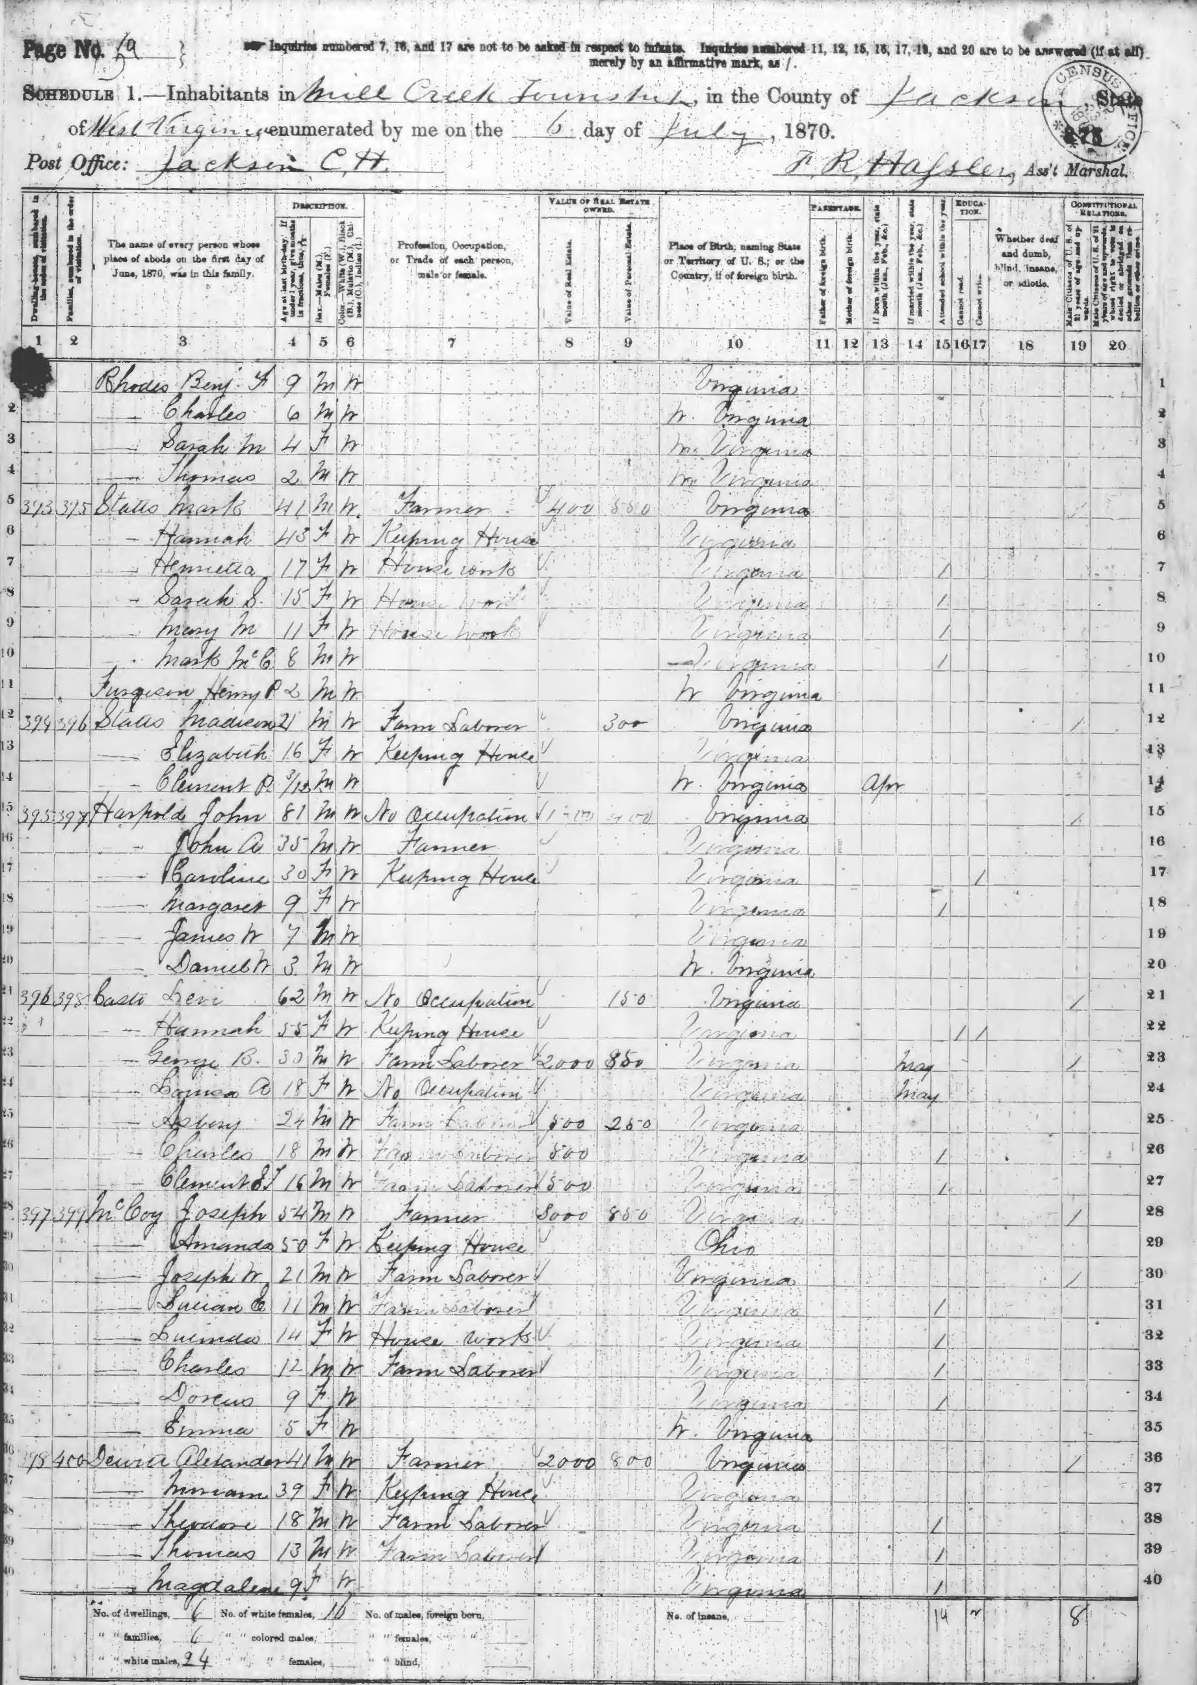 Page No. 59
Inquiries numbered 7, 16, and 17 are not to be asked in respect to infants. Inquiries numbered 11, 12, 15, 16, 17, 19, and 20 are to be answered (if at all)
merely by an affirmative mark, as /.
SCHEDULE 1.—Inhabitants in Mill Creek Township, in the County of Jackson, State
of West Virginia enumerated by me on the 6 day of July, 1870.
Post Office: Jackson C.H.
Ass't Marshal.
CENSUS OFFICE
DESCRIPTION.
VALUE OF REAL ESTATE OWNED.
PARENTAGE.
EDUCATION.
CONSTITUTIONAL RELATIONS.
Dwelling-houses, numbered in the order of visitation.
Families, numbered in the order of visitation.
The name of every person whose place of abode on the first day of June, 1870, was in this family.
Age at last birth-day. If under 1 year, give months in fractions, thus, 3/12
Sex.—Males (M.), Females (F.)
Color.—White (W.), Black (B.), Mulatto (M.), Chinese (C.), Indian (I.)
Profession, Occupation, or Trade of each person, male or female.
Value of Real Estate.
Value of Personal Estate.
Place of Birth, naming State or Territory of U. S.; or the Country, if of foreign birth.
Father of foreign birth.
Mother of foreign birth.
If born within the year, state month (Jan., Feb., &c.)
If married within the year, state month (Jan., Feb., &c.)
Attended school within the year.
Cannot read.
Cannot write.
Whether deaf and dumb, blind, insane, or idiotic.
Male Citizens of U. S. of 21 years of age and upwards.
1 2 3 4 5 6 7 8 9 10 11 12 13 14 15 16 17 18 19 20
Rhodes Benj. F 9 M W Virginia 1
2 — Charles 6 M W W. Virginia 2
3 — Sarah M 4 F W W. Virginia 3
4 — Thomas 2 M W W. Virginia 4
5 393 395 Statts Mark 41 M W Farmer 400 550 Virginia / 5
6 — Hannah 43 F W Keeping House Virginia 6
7 — Henrietta 17 F W House work Virginia / 7
8 — Sarah S. 15 F W House Work Virginia / 8
9 — Mary M 11 F W House Work Virginia / 9
10 — Mark McC. 8 M W Virginia / 10
11 Furgison Henry P. 2 M W W Virginia 11
12 394 396 Statts Madison 21 M W Farm Laborer 300 Virginia / 12
13 — Elizabeth 16 F W Keeping House Virginia 13
14 — Clement P. 3/12 M W W. Virginia Apr 14
15 395 397 Harpold John 81 M W No Occupation Virginia / 15
16 — John A 35 M W Farmer Virginia 16
17 — Caroline 30 F W Keeping House Virginia / 17
18 — Margaret 9 F W Virginia / 18
19 — James W 7 M W Virginia 19
20 — Daniel W 3 M W W. Virginia 20
21 396 398 Casto Levi 62 M W No Occupation 150 Virginia / 21
22 — Hannah 55 F W Keeping House Virginia / / 22
23 — George B. 30 M W Farm Laborer 2000 850 Virginia May / 23
24 — Louisa A 18 F W No Occupation Virginia May 24
25 — Asbury 24 M W Farm Laborer 500 250 Virginia 25
26 — Charles 18 M W Farm Laborer 500 Virginia / 26
27 — Clement 16 M W Farm Laborer 500 Virginia / 27
28 397 399 McCoy Joseph 54 M W Farmer 8000 850 Virginia / 28
29 — Amanda 50 F W Keeping House Ohio 29
30 — Joseph W. 21 M W Farm Laborer Virginia / 30
31 — Lucian E 11 M W Farm Laborer Virginia / 31
32 — Lucinda 14 F W House Work Virginia / 32
33 — Charles 12 M W Farm Laborer Virginia / 33
34 — Dorcus 9 F W Virginia / 34
35 — Emma 5 F W W. Virginia 35
36 398 400 Alexander 41 M W Farmer 2000 800 Virginia / 36
37 — Miriam 39 F W Keeping House Virginia 37
38 — Theodore 18 M W Farm Laborer Virginia / 38
39 — Thomas 13 M W Farm Laborer Virginia / 39
40 — Magdalene 9 F W Virginia / 40
No. of dwellings, 6 No. of white females, 16 No. of males, foreign born, No. of insane, 14 2 8
" " families, 6 " " colored males, " " females, " "
" " white males, 24 " " " females, " " blind,